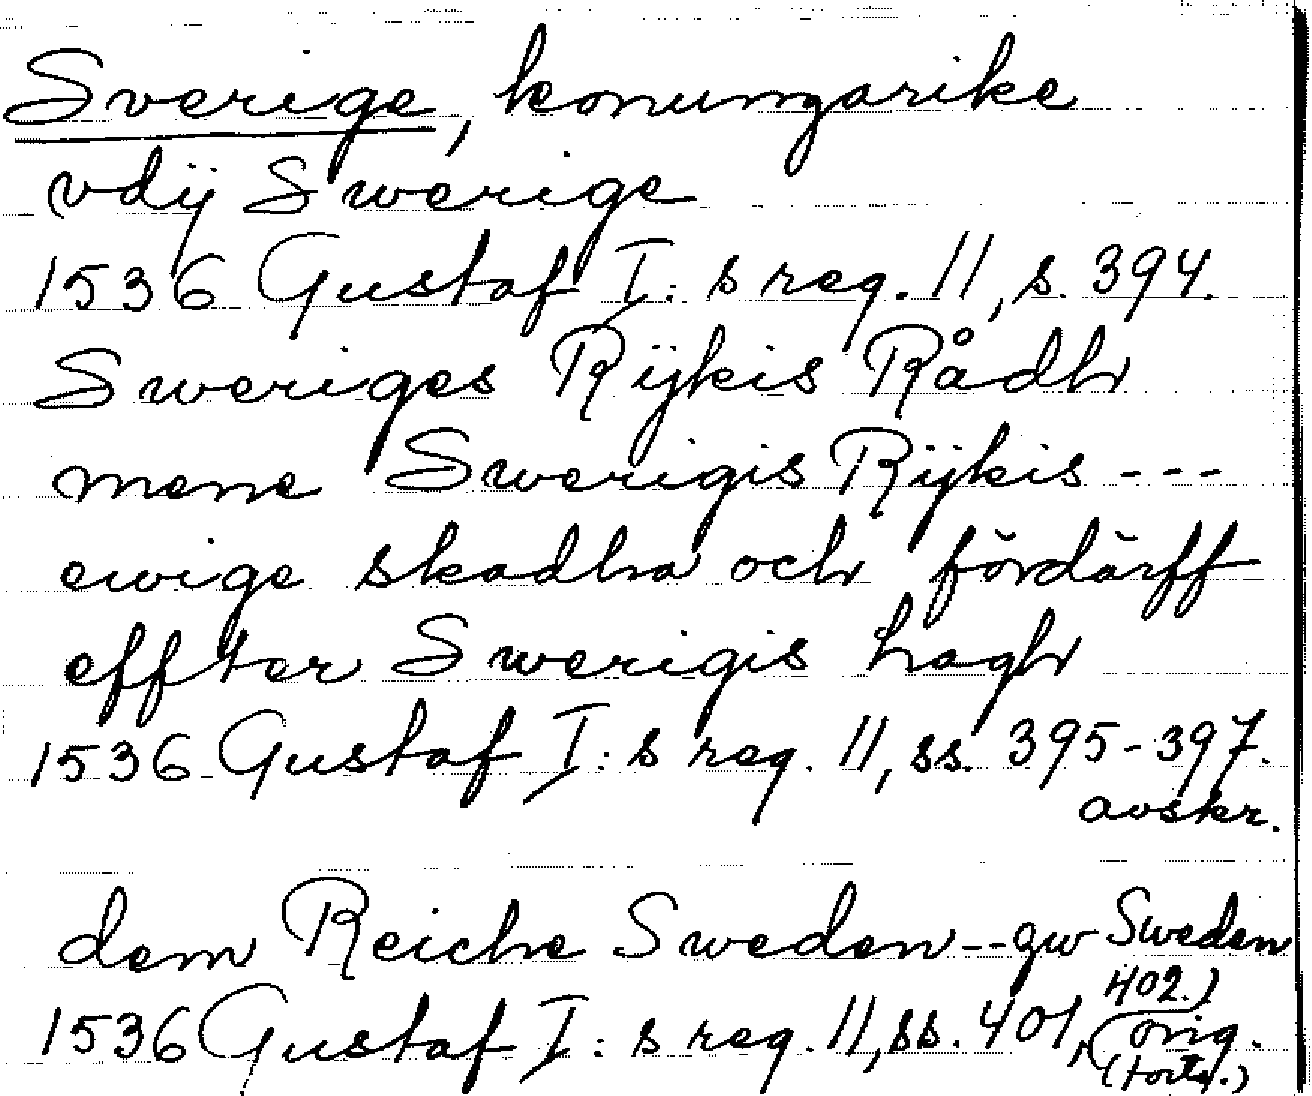 Sverige, konungarike
vdij Swerige
1536 Gustaf I:s reg. 11, s. 394.
Sweriges Rijkis Rådh
mene Swerigis Rijkis ---
ewige skadha och fördärff
effter Swerigis hagh
1536 Gustaf I:s reg. 11, ss. 395-397.
avskr.
dem Reiche Sweden -- gw Sweden
1536 Gustaf I:s reg. 11, ss. 401, 402.)
orig.
(forts.)